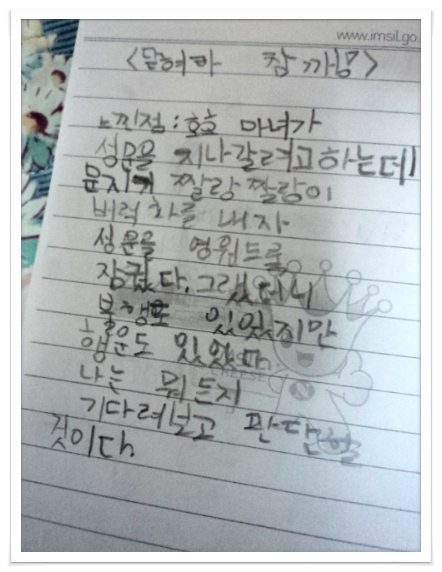 www.imsil.go
<문혀라 참깨몽>
느낀점 : 호호 마녀가
성문을 지나갈려고하는데
문지기 짤랑짤랑이
버럭 화를 내자
성문을 영원도록
잠궜다. 그랬더니
불행도 있었지만
행운도 있었다
나는 뭐든지
기다려보고 판단할
것이다
CHEESE